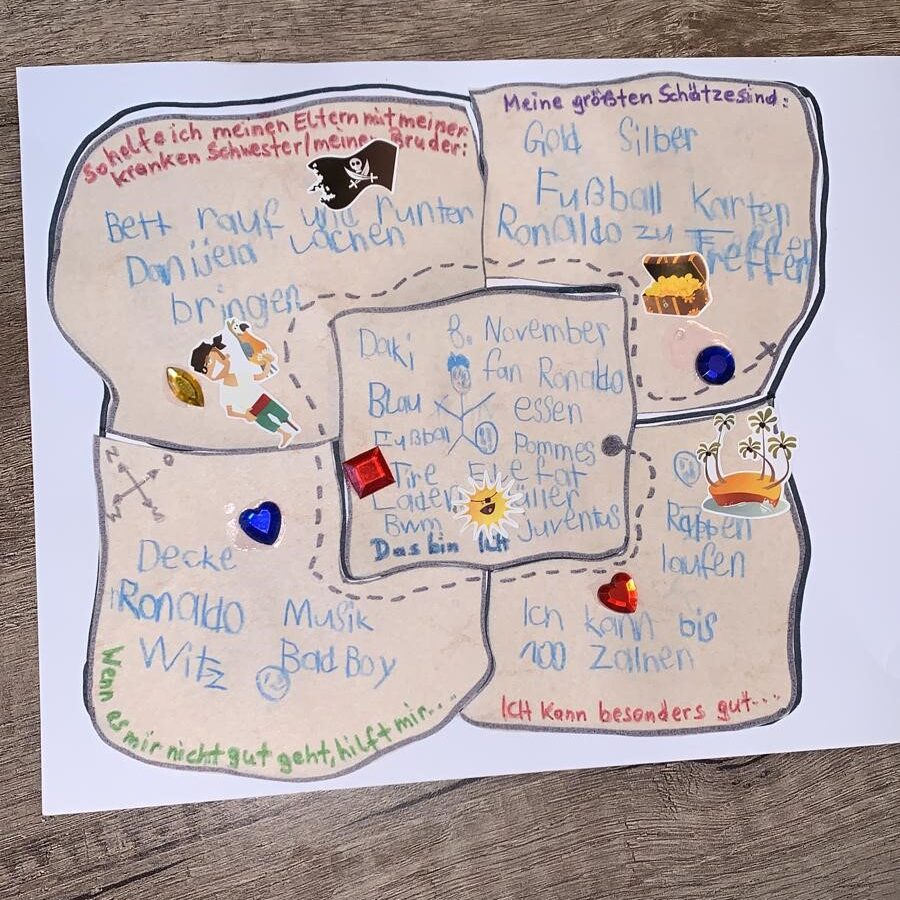 So helfe ich meinen Eltern mit meiner
kranken Schwester/meinem Bruder:
Bett rauf und runter
Danijela lachen
bringen
Meine größten Schätze sind:
Gold Silber
Fußball Karten
Ronaldo zu Treffen
Daki 8. November
fan Ronaldo
Blau essen
Fußball Pommes
Tire
Laden
Bwm Juventus
Das bin Ich
N O
W S
Decke
Ronaldo Musik
Witz Bad Boy
Wenn es mir nicht gut geht, hilft mir...
Rappen
laufen
Ich kann bis
100 Zälnen
Ich kann besonders gut...